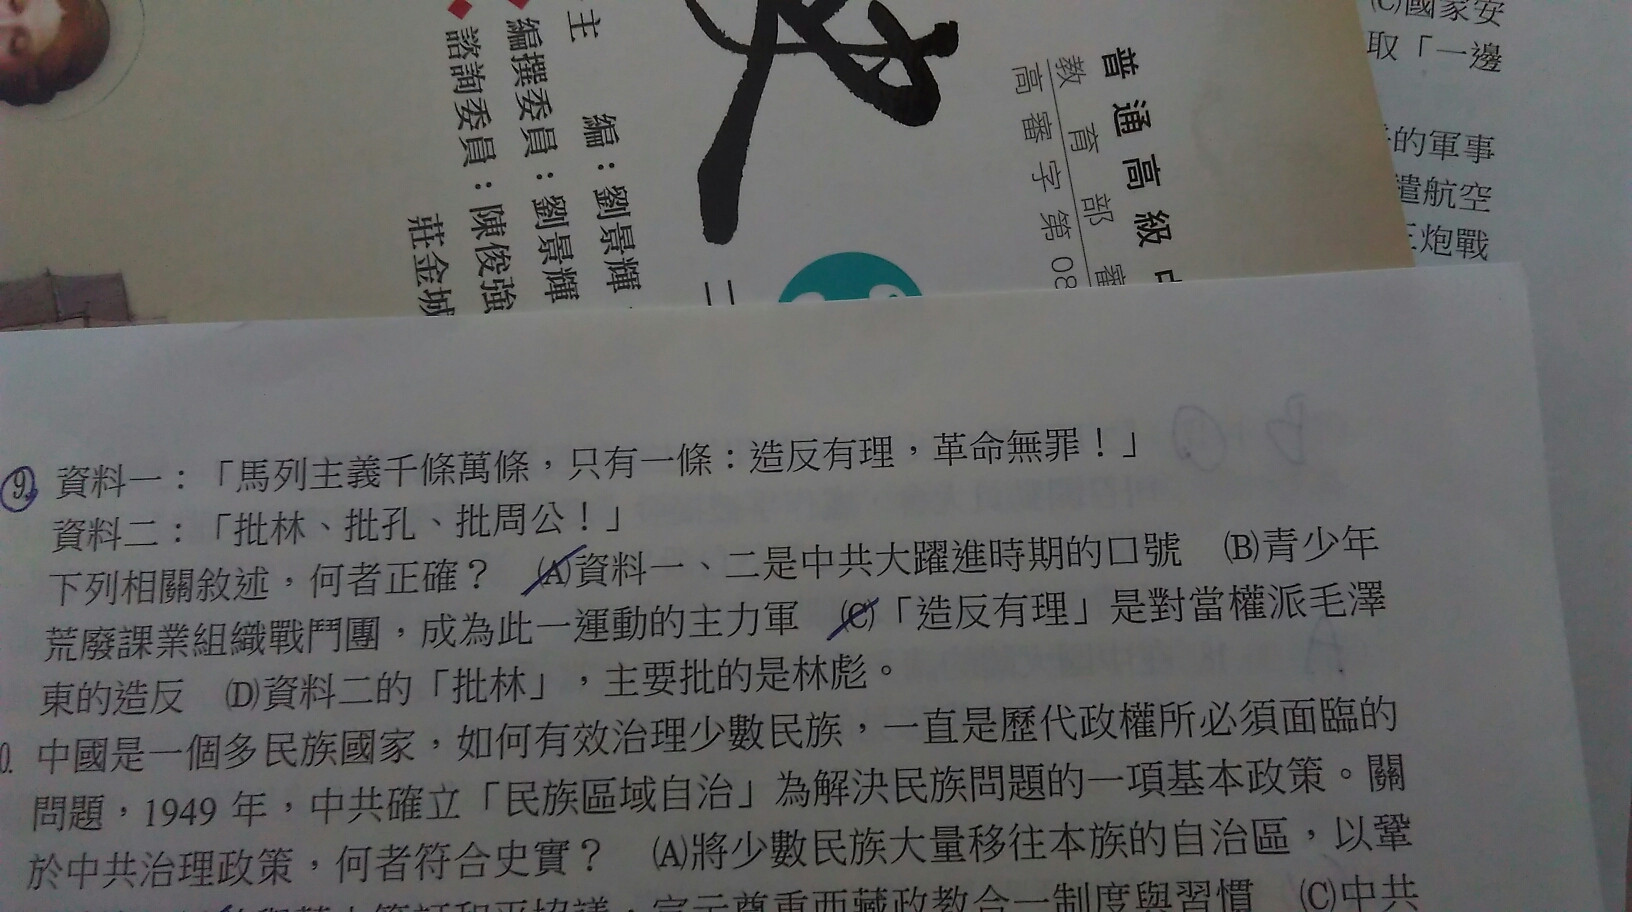 普通高級中
教育部審
高審字第08
二
主 編：劉景輝
編撰委員：劉景輝
諮詢委員：陳俊強
莊金城
(C)國家安
取「一邊
的軍事
遣航空
炮戰
9. 資料一：「馬列主義千條萬條，只有一條：造反有理，革命無罪！」
資料二：「批林、批孔、批周公！」
下列相關敘述，何者正確？ (A)資料一、二是中共大躍進時期的口號 (B)青少年
荒廢課業組織戰鬥團，成為此一運動的主力軍 (C)「造反有理」是對當權派毛澤
東的造反 (D)資料二的「批林」，主要批的是林彪。
0. 中國是一個多民族國家，如何有效治理少數民族，一直是歷代政權所必須面臨的
問題，1949 年，中共確立「民族區域自治」為解決民族問題的一項基本政策。關
於中共治理政策，何者符合史實？ (A)將少數民族大量移往本族的自治區，以鞏
和平協議，宣示尊重西藏政教合一制度與習慣 (C)中共